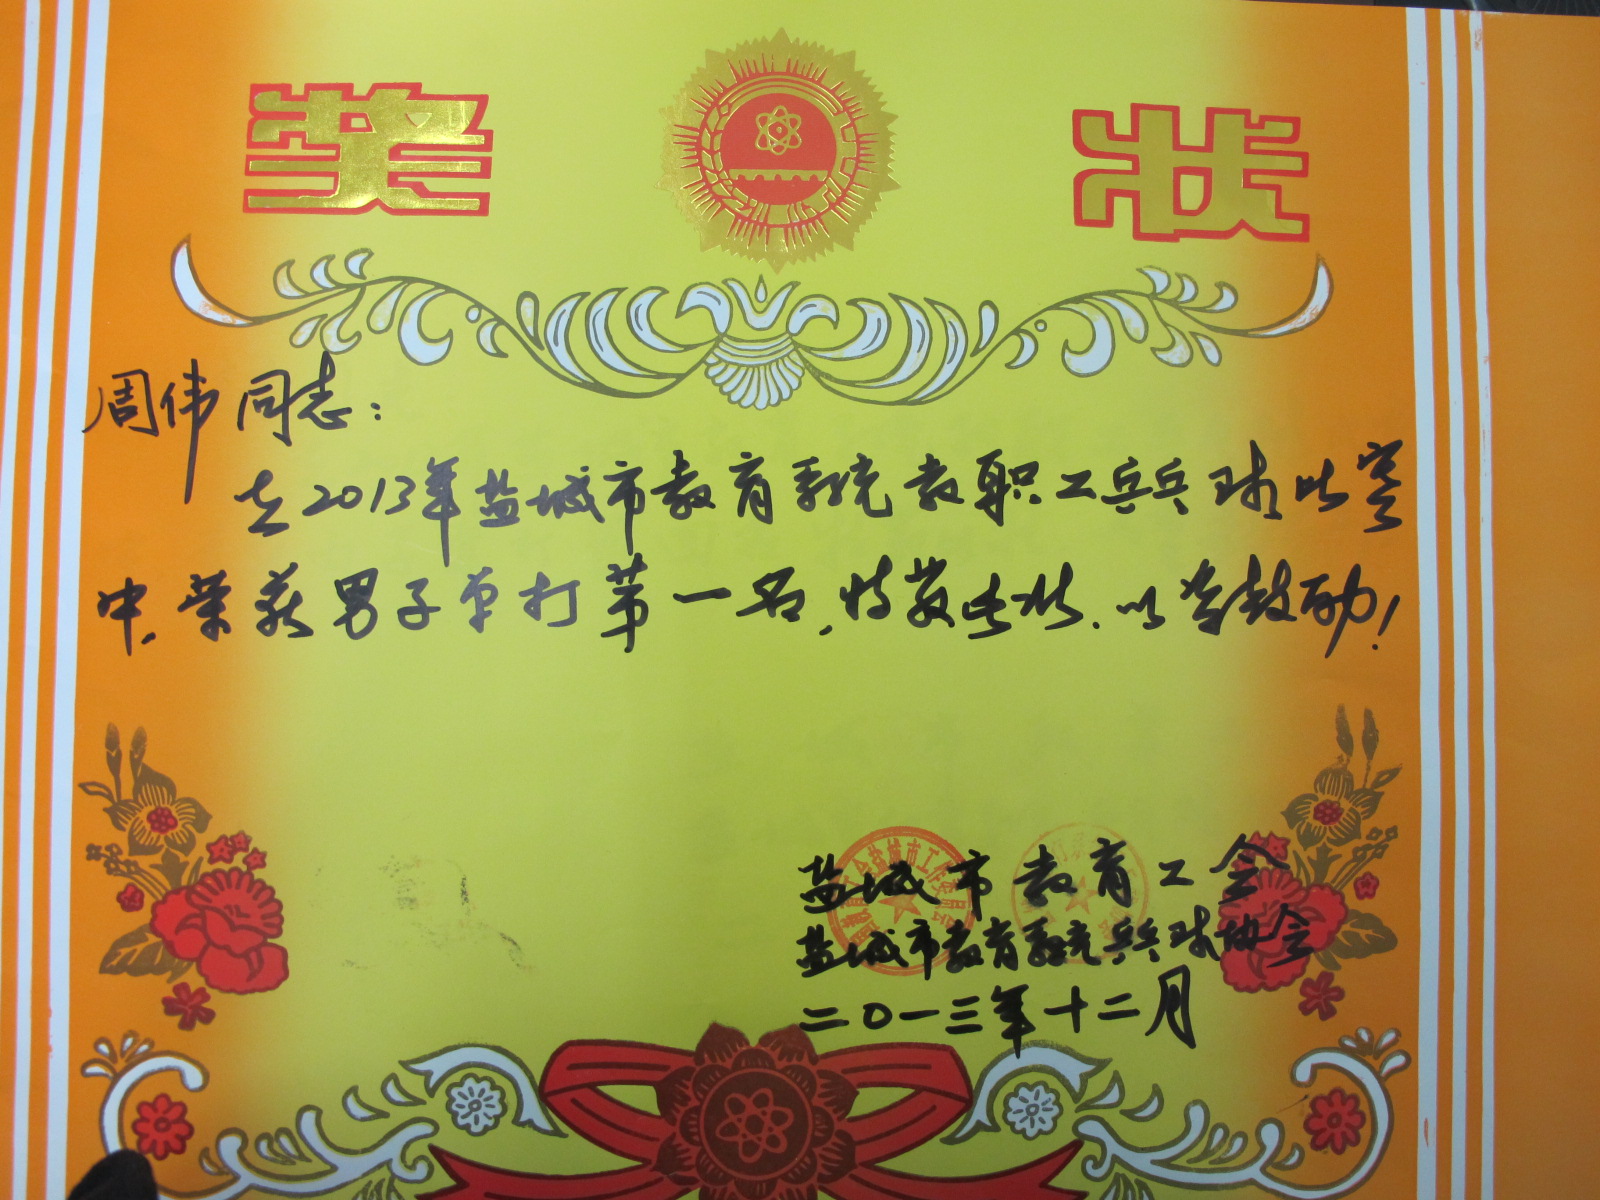 奖状
周伟同志：
在2013年盐城市教育系统教职工乒乓球比赛
中，荣获男子单打第一名，特发此状，以资鼓励！
盐城市教育工会
盐城市教育系统乒乓球协会
二〇一三年十二月